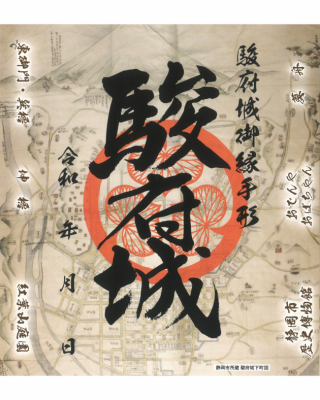 駿府城御縁手形
駿府城
令和 年 月 日
東御門・巽櫓
坤櫓
紅葉山庭園
おでんや
おばちゃん
静岡市
歴史博物館
静岡市所蔵 駿府城下町図